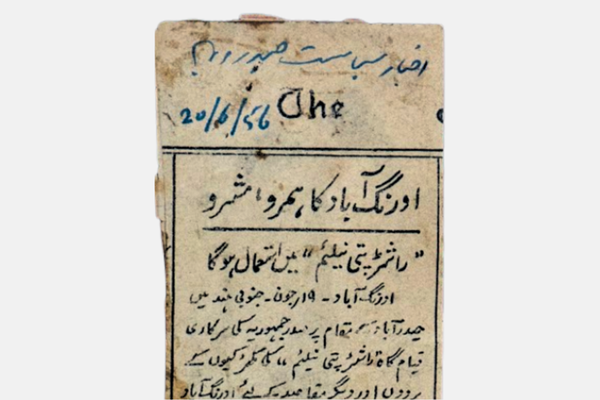 اخبار سیاست حیدرآباد
20/6/56 The
اورنگ آباد کا ہمرو، مشرو
”راشٹرپتی نیلئم“ میں استعمال ہوگا
اورنگ آباد۔ ۱۹/جون۔ جنوبی ہند میں
حیدرآباد کے مقام پر صدر جمہوریہ کی سرکاری
قیام گاہ ”راشٹرپتی نیلئم“ کی کھڑکیوں کے
پردوں اور دیگر مقاصد کے لئے اورنگ آباد